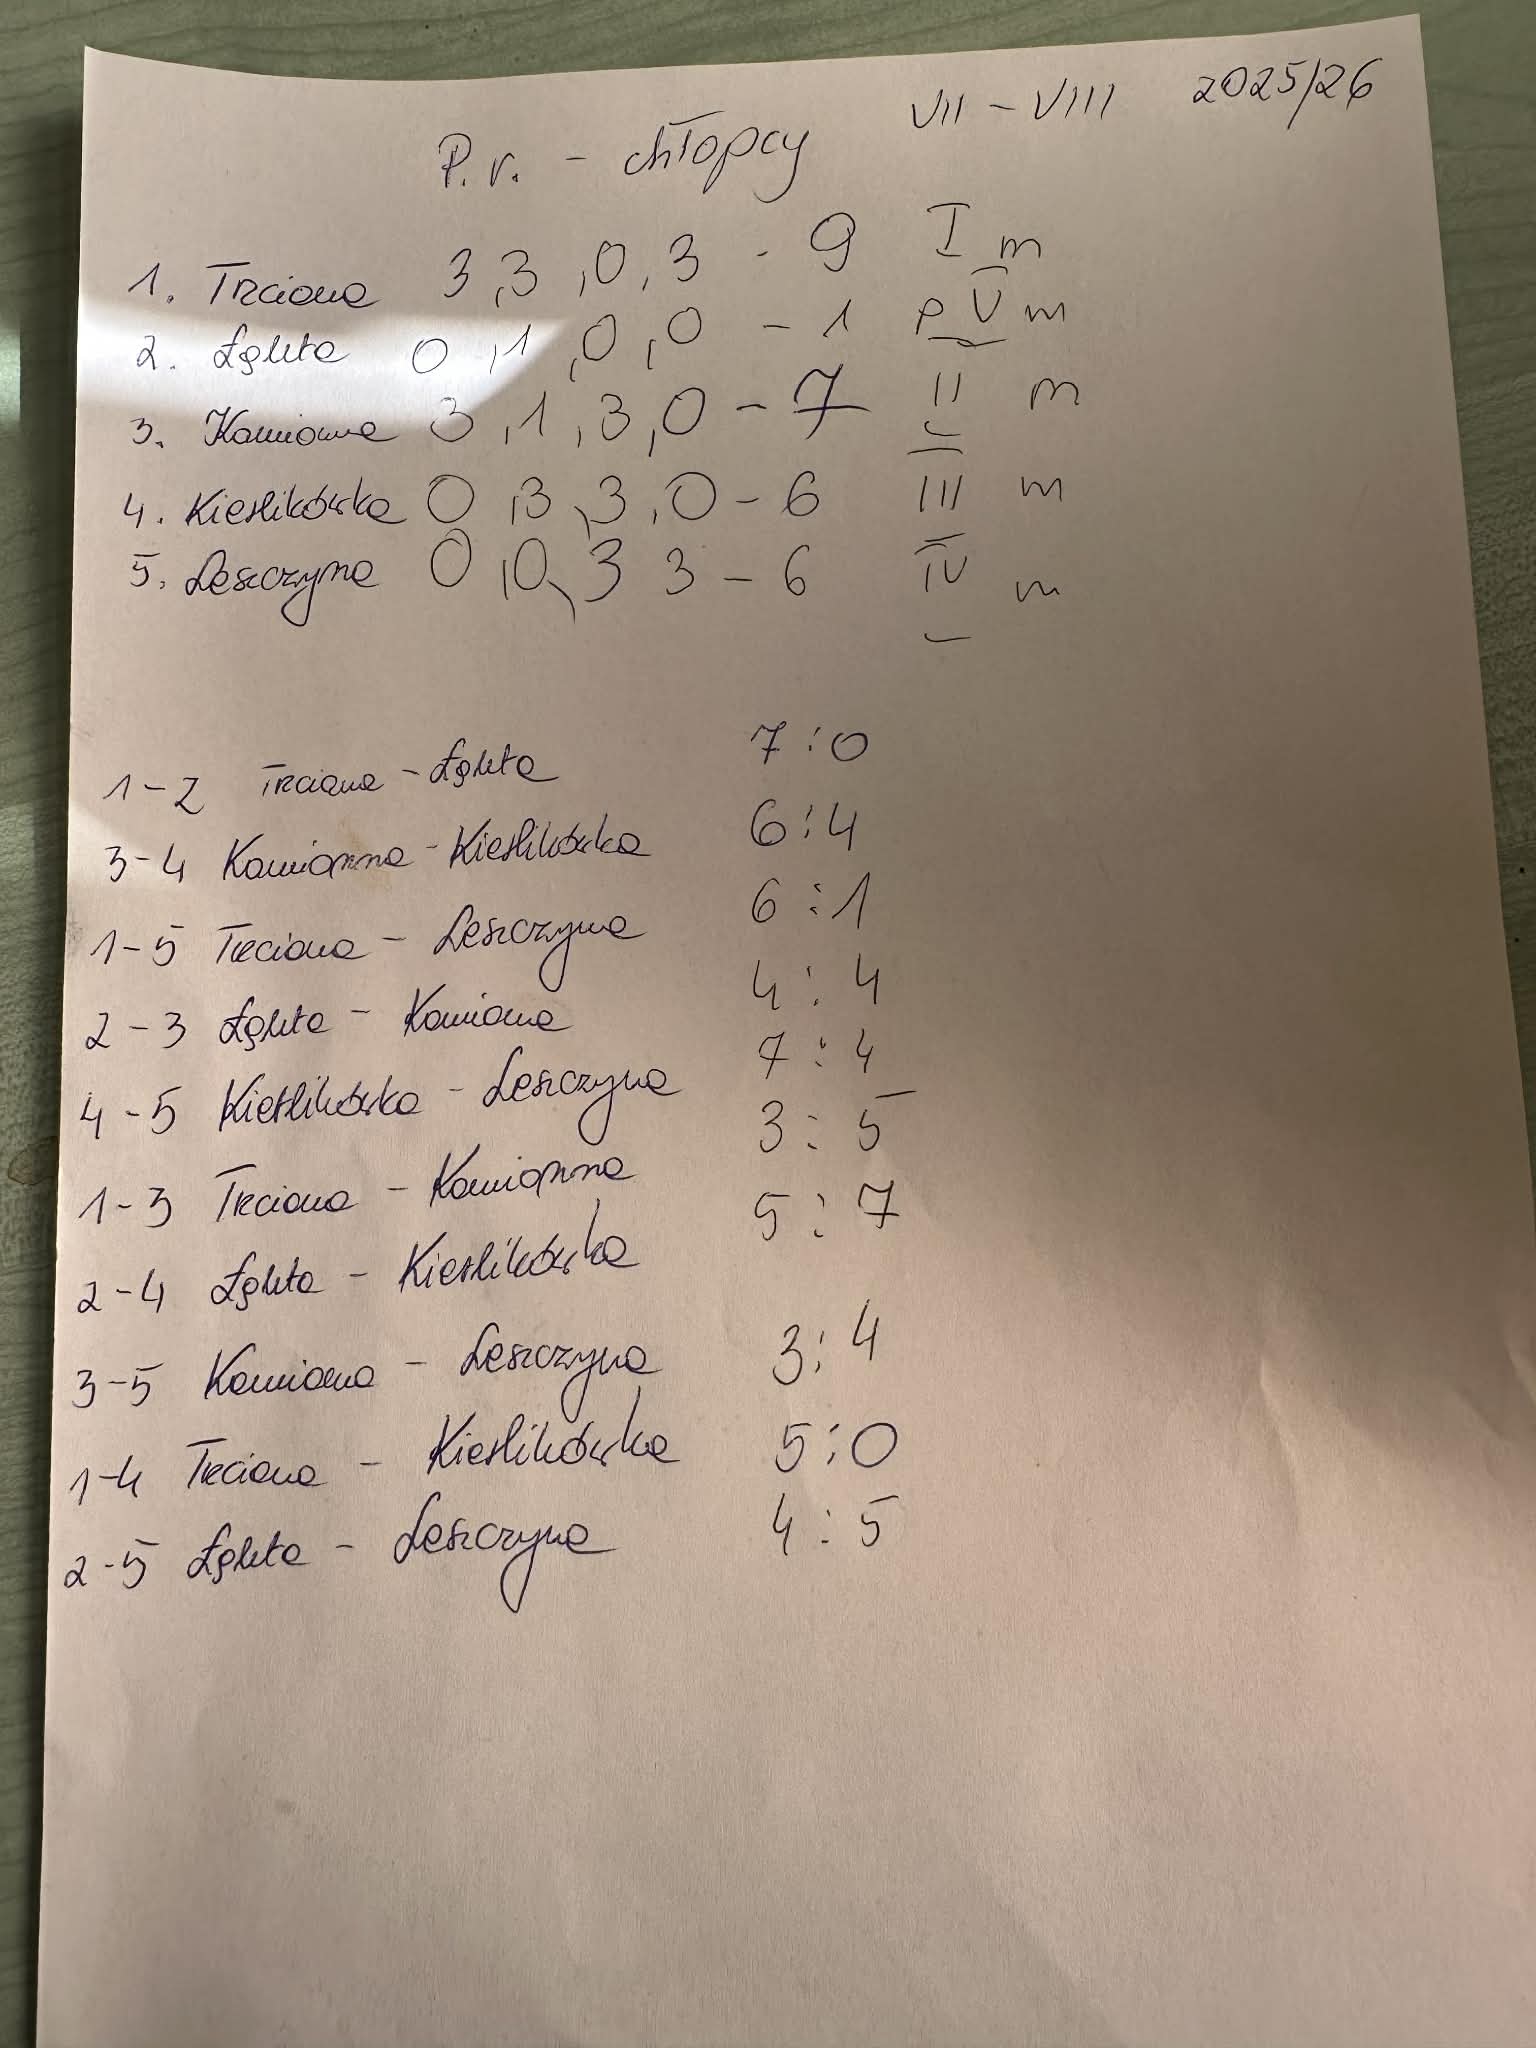 P.r. - chłopcy VII - VIII 2025/26
1. Trciana 3,3,0,3 - 9 I m
2. Łąkta 0,1,0,0 - 1 V m
3. Kamionna 3,1,3,0 - 7 II m
4. Kierlikówka 0,3,3,0 - 6 III m
5. Leszczyna 0,0,3 3 - 6 IV m
1-2 Trciana - Łąkta 7:0
3-4 Kamionna - Kierlikówka 6:4
1-5 Trciana - Leszczyna 6:1
2-3 Łąkta - Kamionna 4:4
4-5 Kierlikówka - Leszczyna 7:4
1-3 Trciana - Kamionna 3:5
2-4 Łąkta - Kierlikówka 5:7
3-5 Kamionna - Leszczyna 3:4
1-4 Trciana - Kierlikówka 5:0
2-5 Łąkta - Leszczyna 4:5